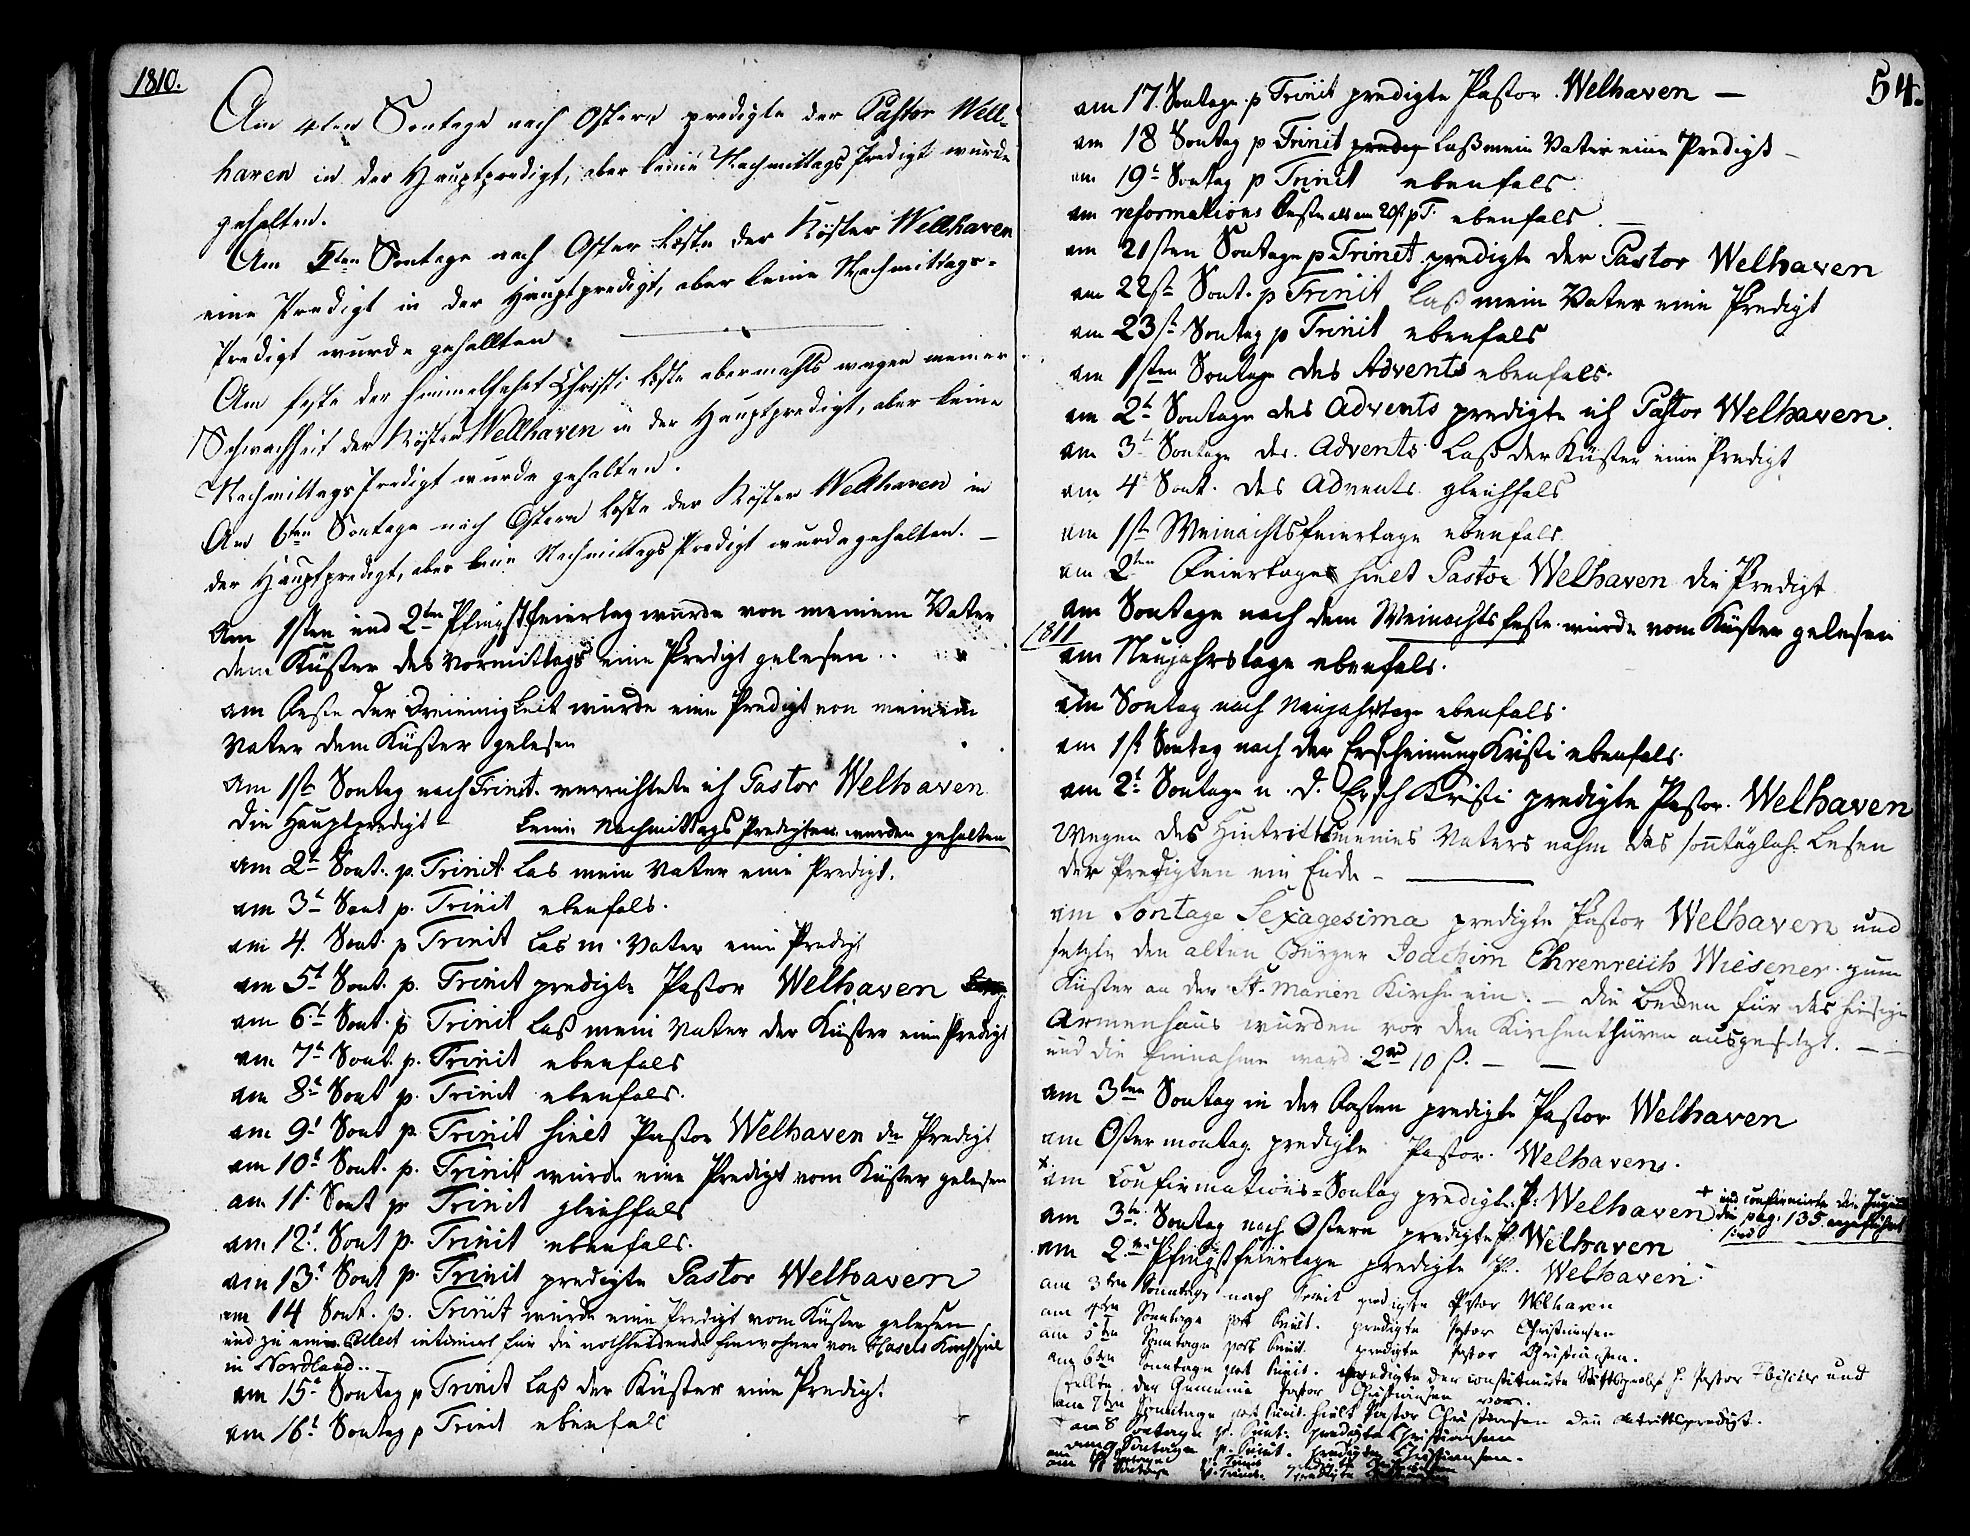 1810.
Am 4ten Sontage nach Ostern predigte der Pastor Well-
haven in der Hauptpredigt, aber keine Nachmittags Predigt wurde
gehalten.
Am 5ten Sontage nach Oster laste der Köster Wellhaven
eine Predigt in der Hauptpredigt, aber keine Nachmittags-
Predigt wurde gehallten.
Am feste der himmelfahrt Christi laste abermahls wegen meiner
Schwachheit der Köster Wellhaven in der Hauptpredigt, aber keine
Nachmittags Predigt wurde gehalten.
Am 6ten Sontage nach Ostern laste der Köster Wellhaven in
der Hauptpredigt, aber keine Nachmittags Predigt wurde gehalten. —
Am 1sten und 2ten Pfingstfeiertag wurde von meinem Vater
dem Küster des Vormittags eine Predigt gelesen ..
am Feste der Dreieinigkeit wurde eine Predigt von meinem
Vater dem Küster gelesen
Am 1st Sontag nach Trinit. verrichtete ich Pastor Welhaven
die Hauptpredigt — keine Nachmittags Predigten wurden gehalten
am 2t Sont. p. Trinit las mein Vater eine Predigt.
am 3t Sont p. Trinit ebenfals.
am 4. Sont. p Trinit las m. Vater eine Predigt
am 5t Sont. p. Trinit predigte Pastor Welhaven
am 6t Sont. p Trinit laß mein Vater der Küster eine Predigt
am 7t Sont. p. Trinit ebenfals
am 8t Sont p. Trinit ebenfals.
am 9t Sont p. Trinit hielt Pastor Welhaven die Predigt
am 10t Sont. p. Trinit wurde eine Predigt vom Küster gelesen
am 11t Sont p. Trinit gleichfals
am 12t Sont p. Trinit ebenfals.
am 13t Sont p. Trinit predigte Pastor Welhaven
am 14 Sont. p. Trinit wurde eine Predigt vom Küster gelesen
und zu eine Collect intimirt für die nothleidende Einwohner von Hasels Kirchspiel
in Nordland..—
am 15t Sontag p Trinit laß der Küster eine Predigt.
am 16t Sontag p Trinit ebenfals
54.
am 17. Sontage p Trinit predigte Pastor Welhaven —
am 18 Sontag p Trinit predig laß mein Vater eine Predigt —
am 19t Sontag p Trinit ebenfals
am reformations Feste als am 20st p T. ebenfals. —
am 21sten Sontage p Trinit. predigte der Pastor Welhaven
am 22st Sont. p Trinit laß mein Vater eine Predigt
am 23st Sontag p Trinit ebenfals
am 1sten Sontage des Advents ebenfals.
am 2t Sontage des Advents predigte ich Pastor Welhaven.
am 3t Sontage des Advents laß der Küster eine Predigt
am 4t Sont. des Advents gleichfals
am 1st Weinachtsfeiertage ebenfals.
am 2ten Feiertage hielt Pastor Welhaven die Predigt
am Sontage nach dem Weinachtsfeste wurde vom Küster gelesen
1811
am Neujahrstage ebenfals.
am Sontag nach Neujahrstage ebenfals.
am 1st Sontag nach der Erscheinung Kristi ebenfals.
am 2t Sontage n. d. Ersch Kristi predigte Pastor Welhaven
Wegen des Hintritts meines Vaters nahm das sontägliche Lesen
der Predigten ein Ende —
am Sontage Sexagesima predigte Pastor Welhaven und
setzte den alten Bürger Joachim Ehrenreich Wiesener zum
Küster an der St. Marien Kirche ein. — die Becken für das hiesige
Armenhaus wurden vor den Kirchenthüren ausgesetzt. —
und die Einnahme ward 2rd 10 ß. — —
am 3ten Sontag in der Fasten predigte Pastor Welhaven
am Ostermontag predigte Pastor Welhaven.
am Confirmations-Sontag predigte P. Welhaven + und confirmirte die Jugend
die pag. 135 angeführt
sind
am 3te Sontag nach Ostern predigte P. Welhaven
am 2ten Pfingstfeiertage predigte P. Welhaven.
am 3ten Sonntage nach Trinit predigte Pastor Welhaven
am 4ten Sonntage post Trinit. predigte Pastor Christiansen
am 5ten Sonntage post Trinit. predigte Pastor Christiansen.
am 6ten Sonntage post Trinit. predigte der constituirte Stiftsprobst H. Pastor und
stellte der Gemeine Pastor Christiansen vor.
am 7ten Sonntage post Trinit. hielt Pastor Christiansen den Antrittspredigt.
am 8 Sontage p. Trinit. predigte Christiansen
am 9 Sontage p. Trinit. predigte Christiansen.